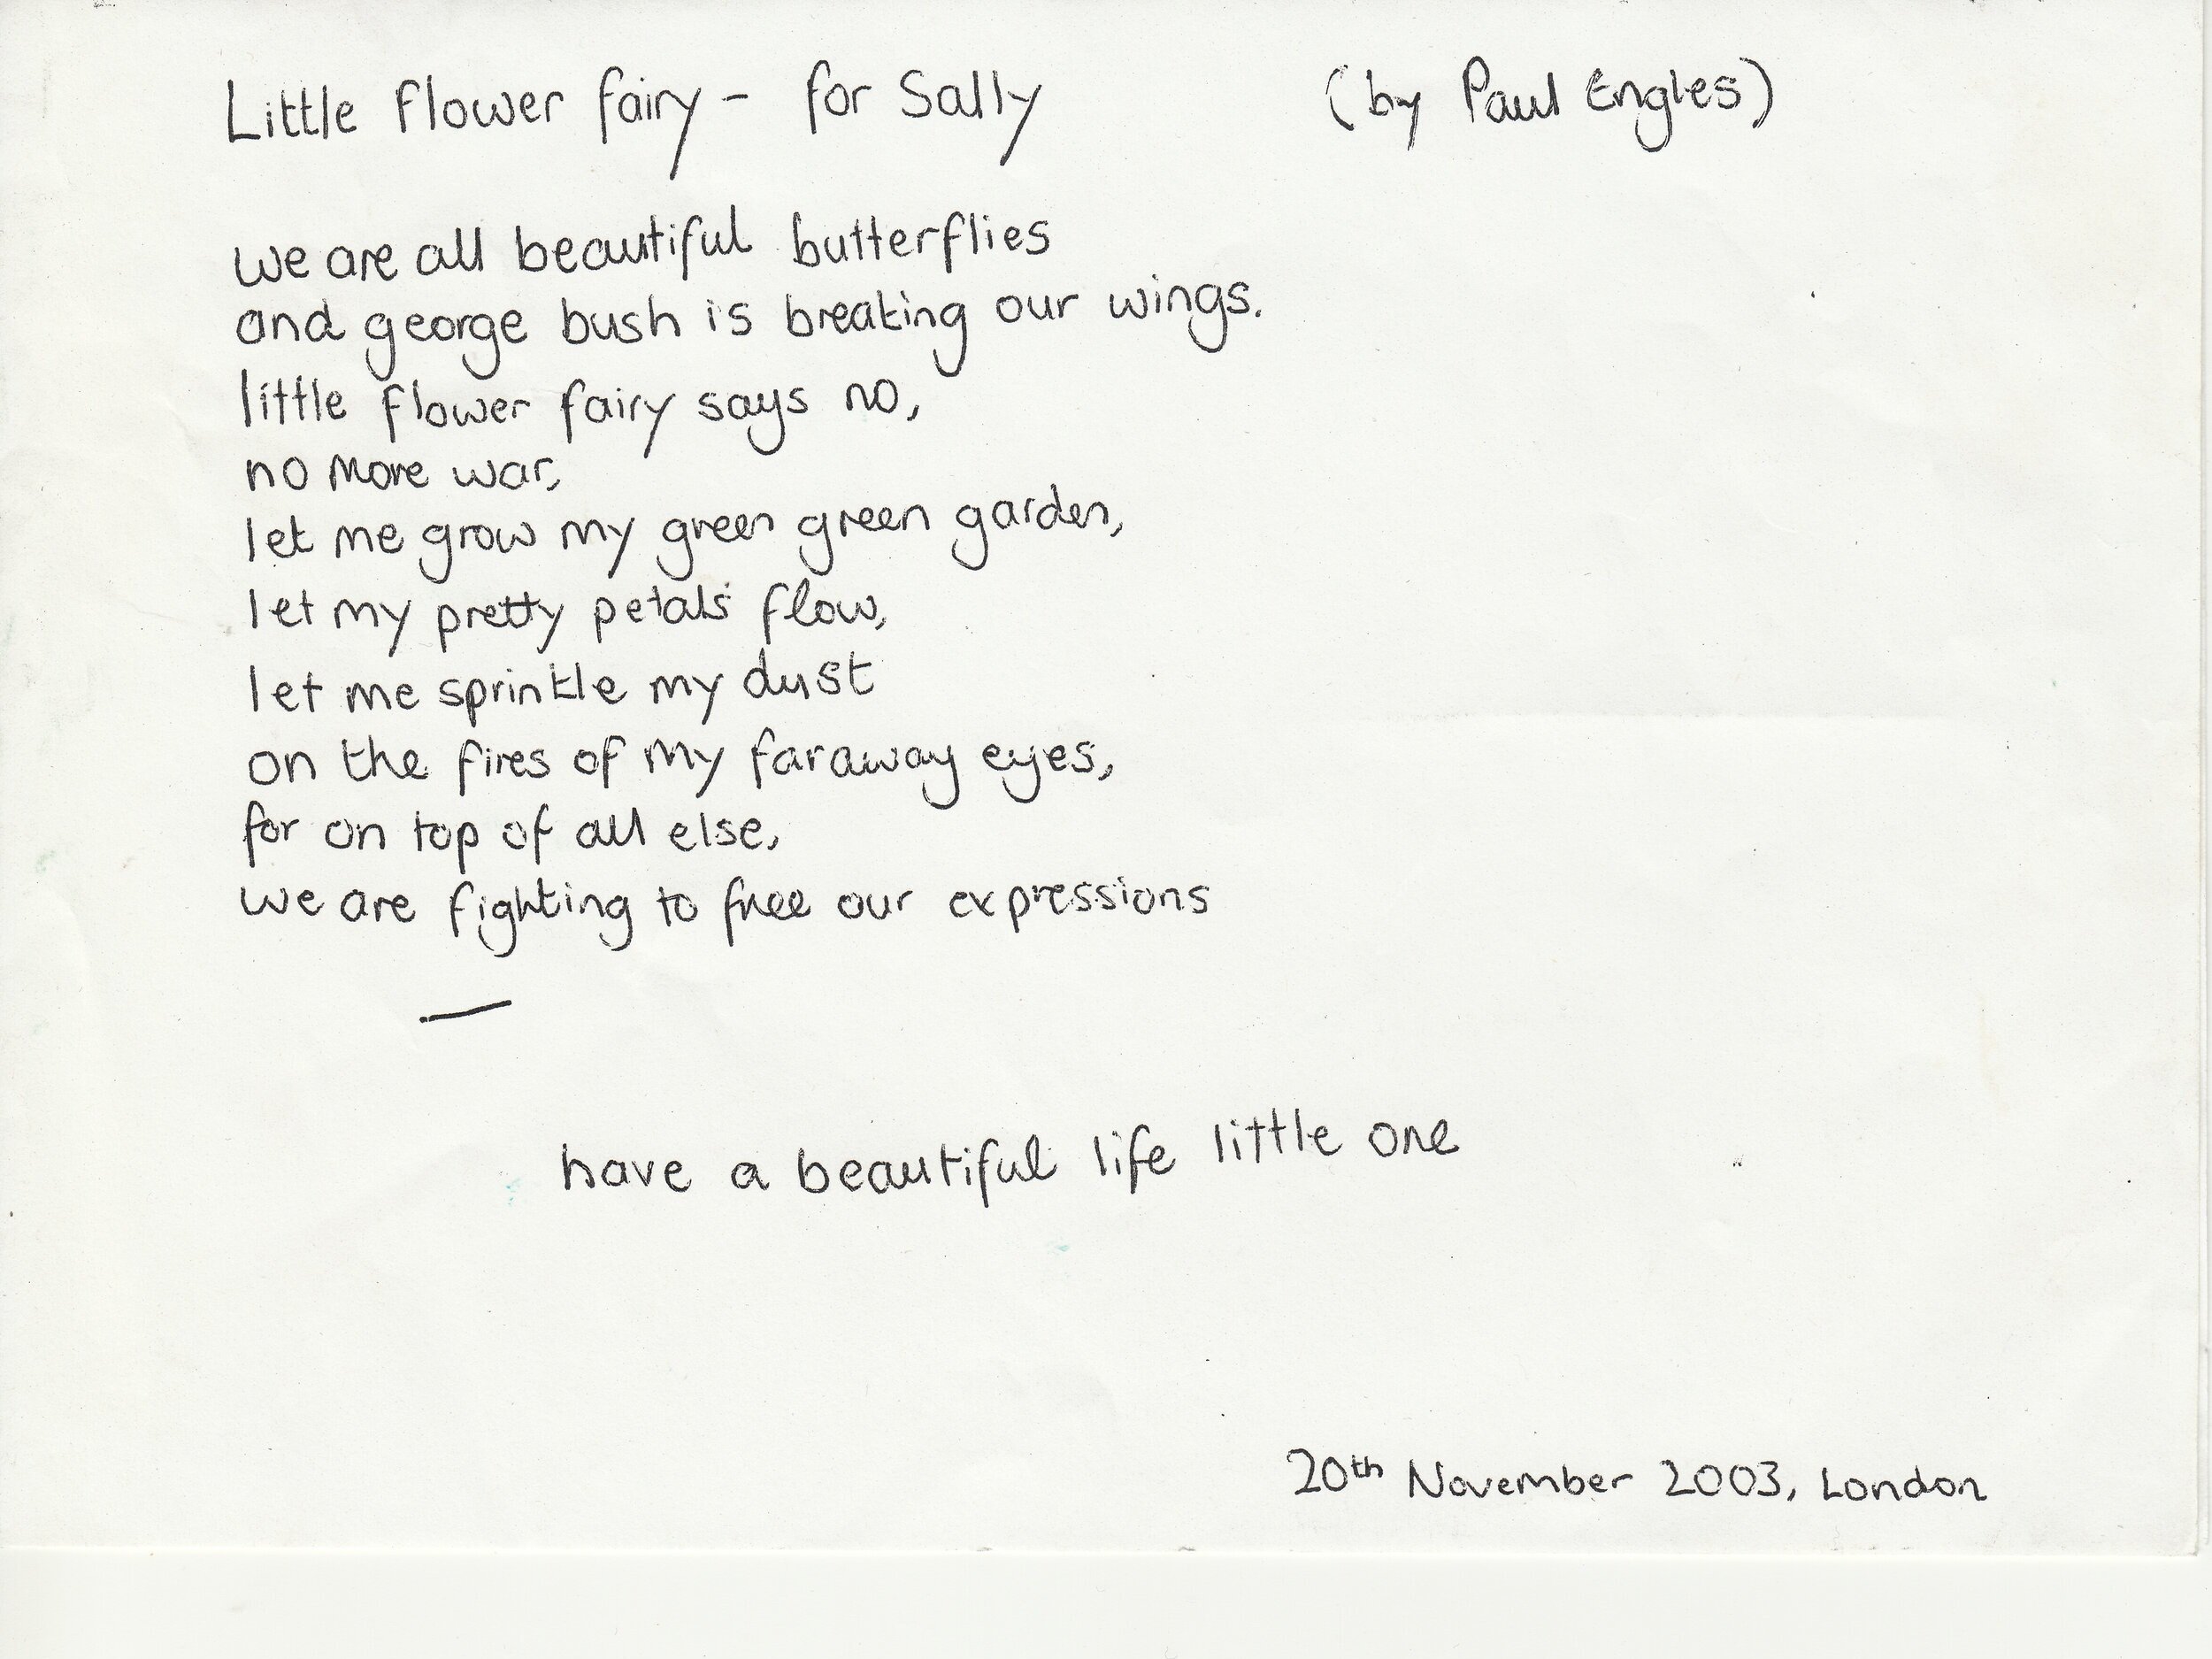 Little flower fairy - for Sally (by Paul Engles)
we are all beautiful butterflies
and george bush is breaking our wings.
little flower fairy says no,
no more war,
let me grow my green green garden,
let my pretty petals flow,
let me sprinkle my dust
on the fires of my faraway eyes,
for on top of all else,
we are fighting to free our expressions
—
have a beautiful life little one
20th November 2003, London